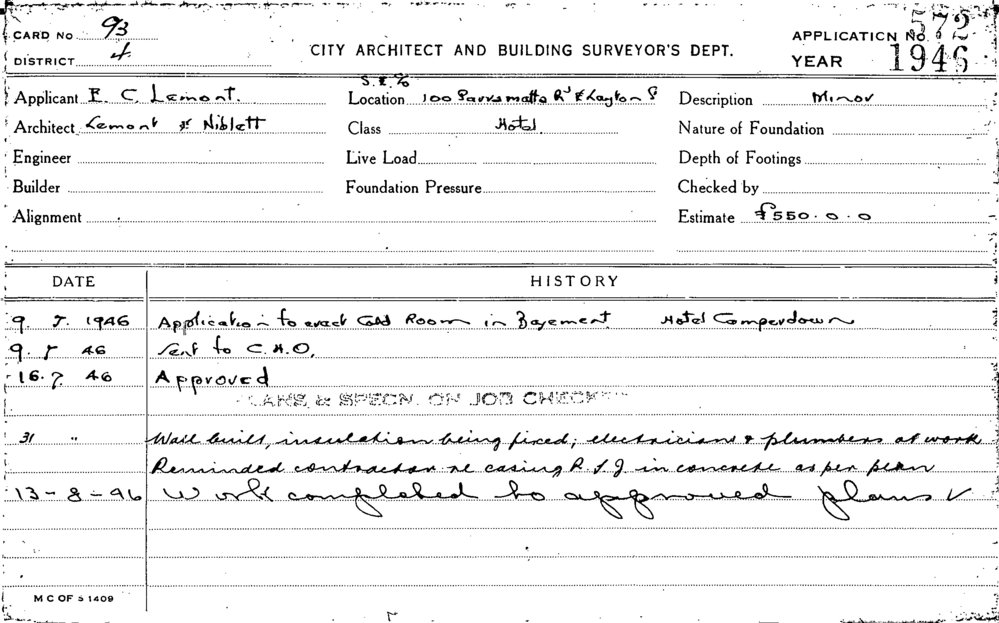 CARD No 93
DISTRICT 4
CITY ARCHITECT AND BUILDING SURVEYOR'S DEPT.
APPLICATION No 572
YEAR 1946
Applicant E. C. Lemont.
Location 100 Parramatta Rd & Layton S
Description Minor
Architect Lemont & Niblett
Class Hotel
Nature of Foundation
Engineer
Live Load
Depth of Footings
Builder
Foundation Pressure
Checked by
Alignment
Estimate £550.0.0
DATE
HISTORY
9. 5. 1946 Application to erect Cold Room in Basement Hotel Camperdown
9. 5 46 Sent to C.H.O.
16. 7. 46 Approved
PLANS & SPECN. ON JOB CHECKED
31 " Wall built, insulation being fixed; electricians & plumbers at work
Reminded contractor re casing R.S.J. in concrete as per plan
13-8-46 Work completed to approved plans
M C OF S 1409